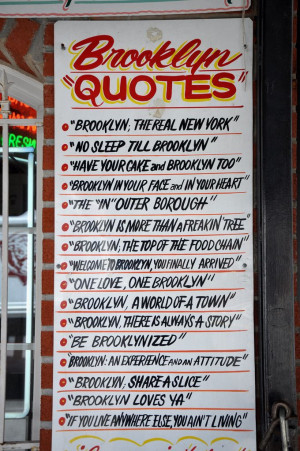 Brooklyn
"QUOTES"
"BROOKLYN; THE REAL NEW YORK"
"NO SLEEP TILL BROOKLYN"
"HAVE YOUR CAKE and BROOKLYN TOO"
"BROOKLYN IN YOUR FACE and IN YOUR HEART"
"THE "IN" OUTER BOROUGH"
"BROOKLYN IS MORE THAN A FREAKIN' TREE"
"BROOKLYN, THE TOP OF THE FOOD CHAIN"
"WELCOME TO BROOKLYN, YOU FINALLY ARRIVED"
"ONE LOVE, ONE BROOKLYN"
"BROOKLYN, A WORLD OF A TOWN"
"BROOKLYN, THERE IS ALWAYS A STORY"
"BE BROOKLYNIZED"
"BROOKLYN: AN EXPERIENCE AND AN ATTITUDE"
"BROOKLYN, SHARE A SLICE"
"BROOKLYN LOVES YA"
"IF YOU LIVE ANYWHERE ELSE, YOU AIN'T LIVING"